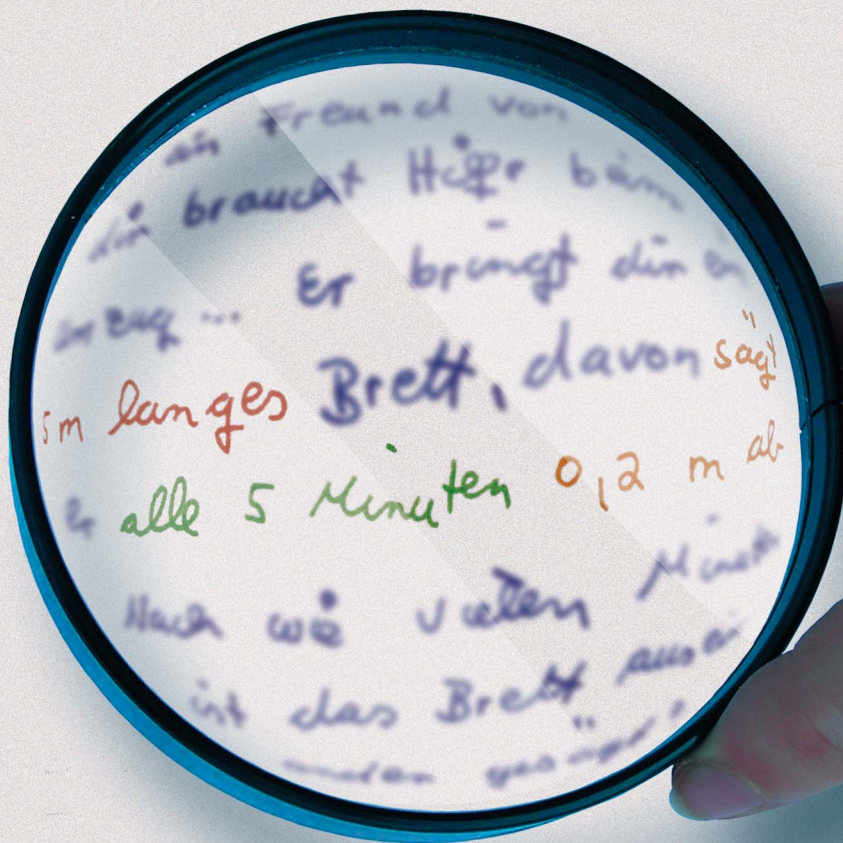 ein Freund von
dir braucht Hilfe beim
Umzug ... Er bringt dir ein
5m langes Brett, davon sägt
Er alle 5 Minuten 0,2 m ab
Nach wie vielen Minuten
ist das Brett ausei
nander gesägt?